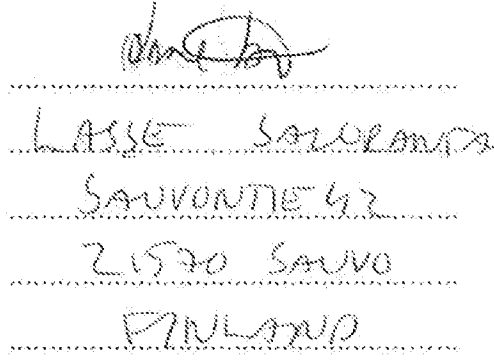 LASSE SALORANTA
SAUVONTIE 42
21570 SAUVO
FINLAND